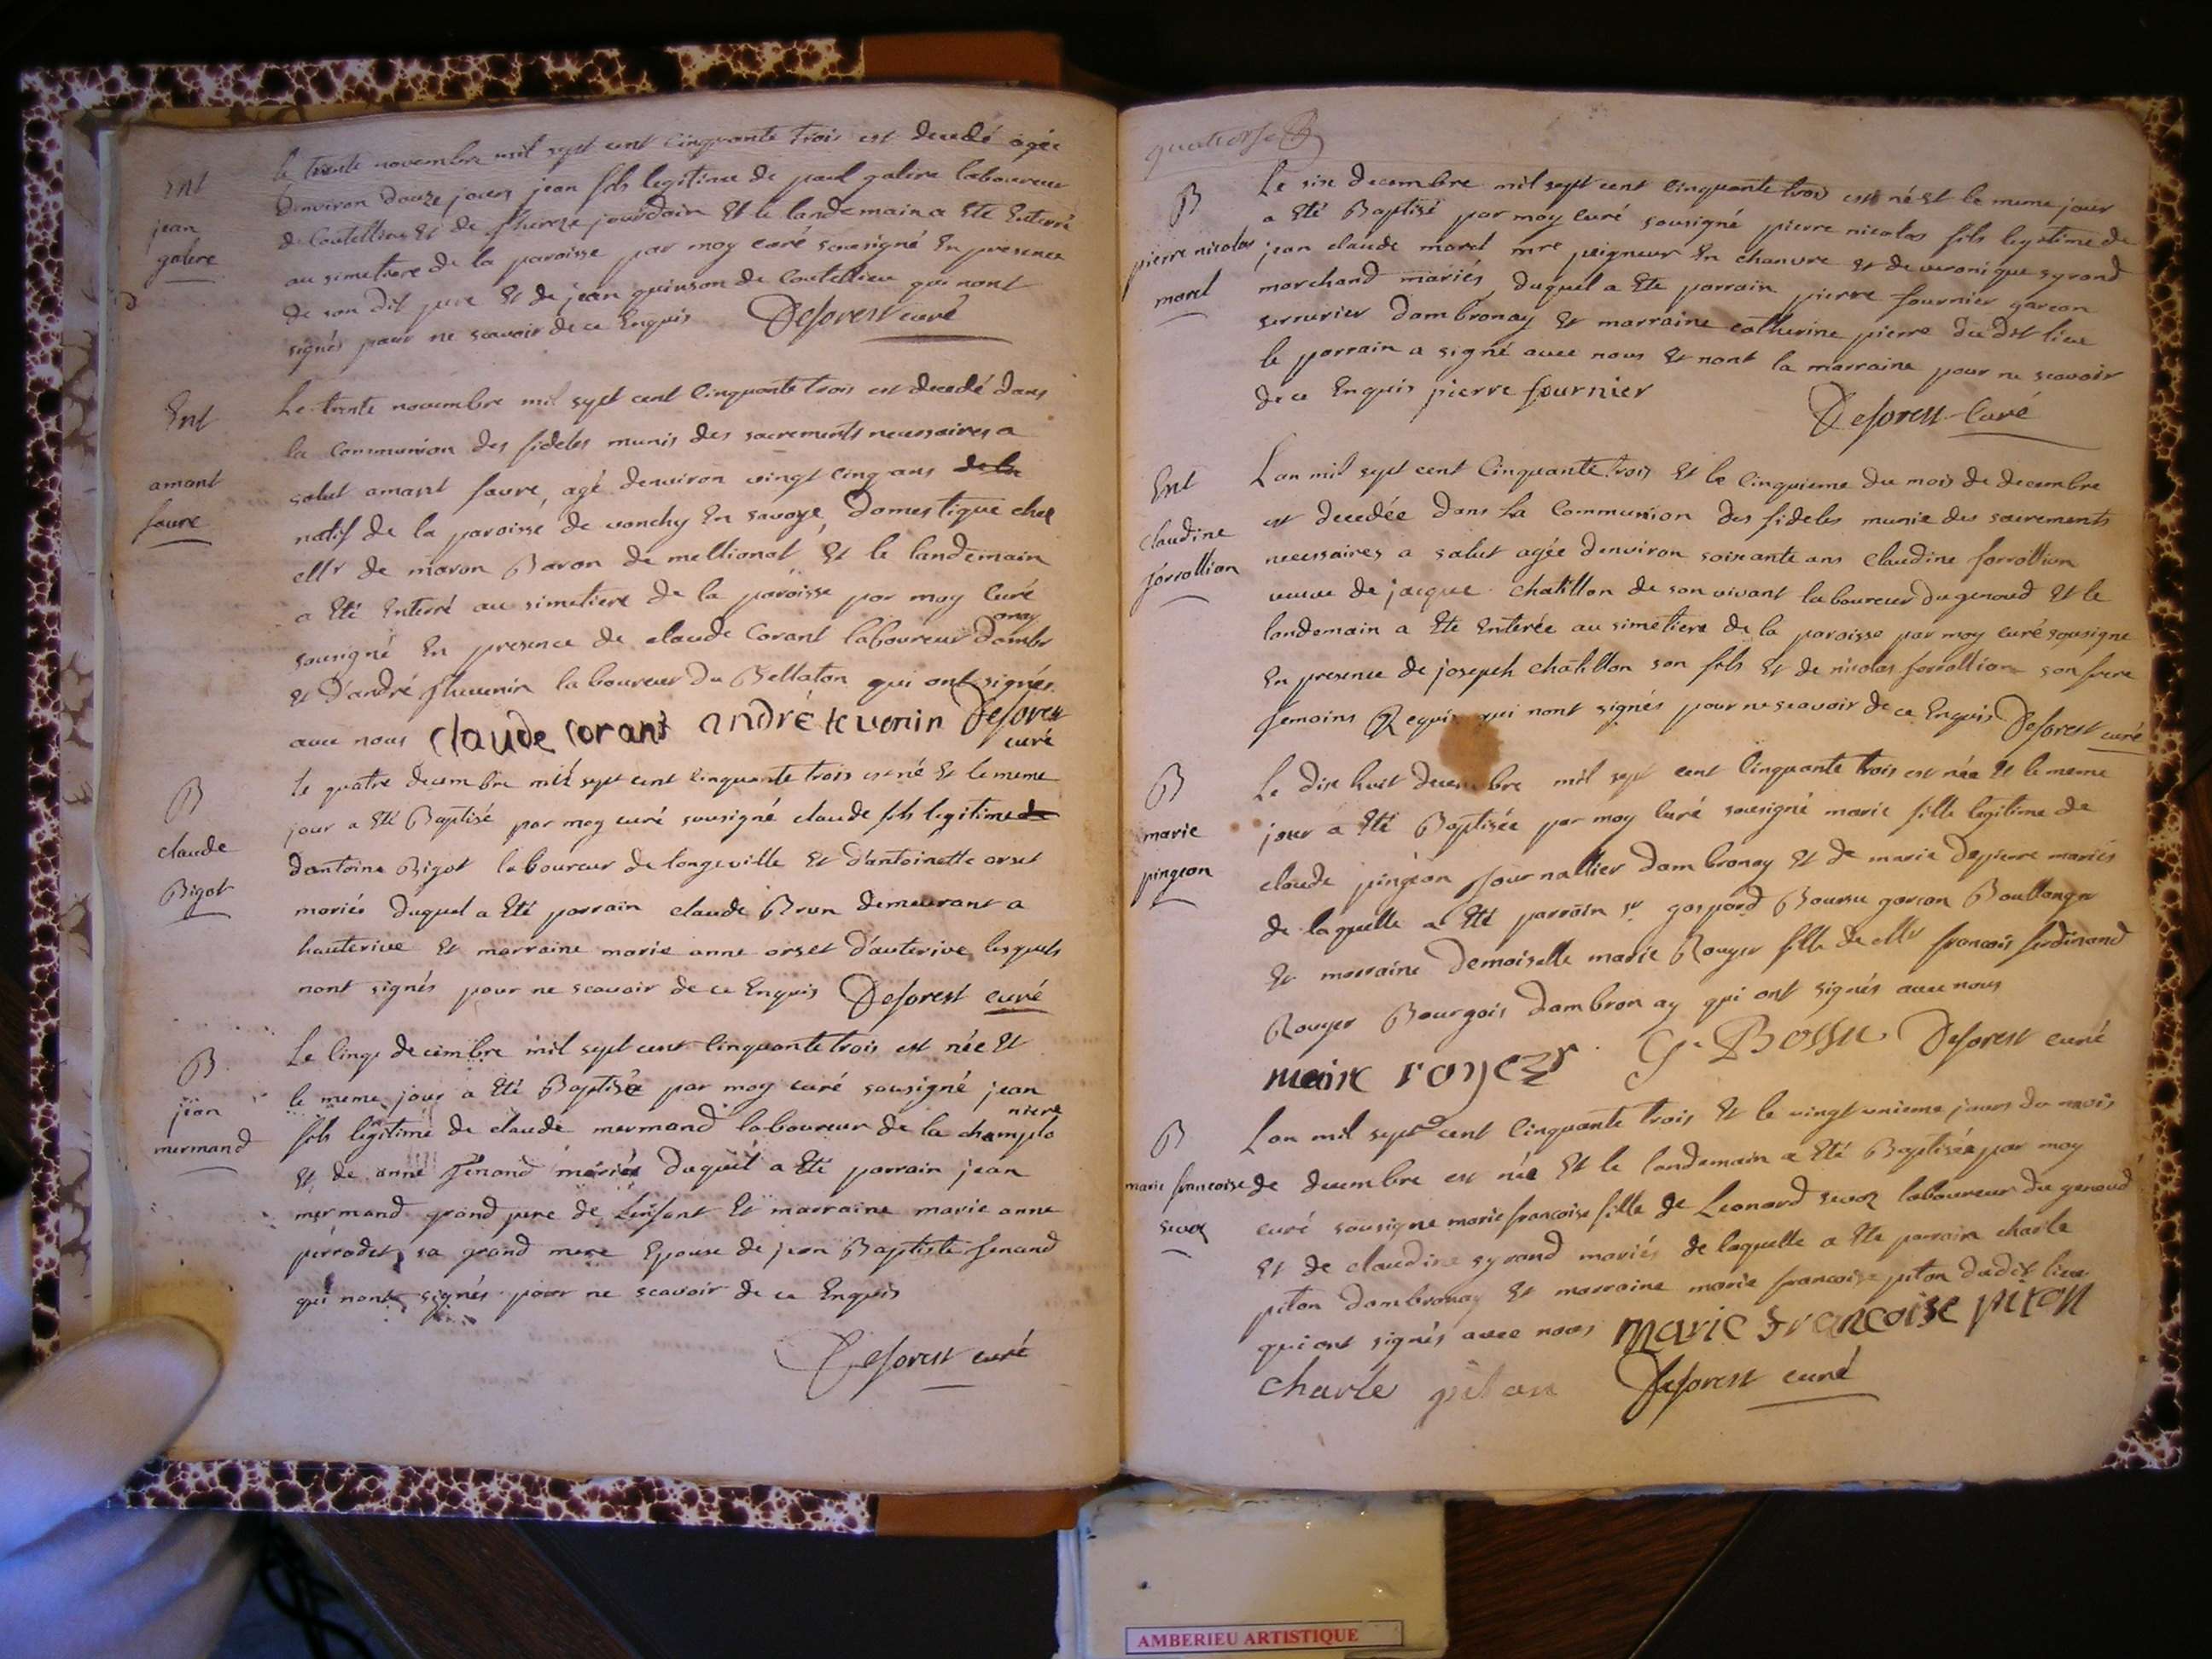 Ent
jean
galere
le trente novembre mil sept cent cinquante trois est decedé agée
denviron douze jours jean fils legitime de paul galere laboureur
de Coutellieu Et de therese jourdain Et le landemain a Eté Enterré
au simetiere de la paroisse par moy curé sousigné En presence
de son dit pere Et de jean quinson de Coutellieu qui nont
signés pour ne scavoir de ce Enquis Deforest curé
Ent
amant
favre
Le trente novembre mil sept cent Cinquante trois est decedé dans
la Communion des fideles munis des sacrements necessaires a
salut amant favre, agé denviron vingt cinq ans de la
natif de la paroisse de vonchy En savoye, Domestique chez
Mr de maron Baron de mellionat Et le landemain
a Eté Enterré au simetiere de la paroisse par moy Curé
sousigné En presence de claude Corant laboureur Dambr
onay
Et D'andré thevenin laboureur Du Bellaton qui ont signés
avec nous claude corant andré tevenin Deforest
curé
B
claude
Bigot
Le quatre decembre mil sept cent Cinquante trois est né Et le meme
jour a Eté Baptisé par moy curé sousigné claude fils legitime de
dantoine Bigot laboureur de longeville Et d'antoinette orset
mariés duquel a Eté parrain claude Brun demeurant a
hauterive Et marraine marie anne orset d'auterive lesquels
nont signés pour ne scavoir de ce Enquis Deforest curé
B
jean
mermand
Le Cinq decembre mil sept cent Cinquante trois est née Et
le meme jour a Eté Baptisée par moy curé sousigné jean
fils legitime de claude mermand laboureur de la champlo
niere
Et de anne fenand mariés duquel a Eté parrain jean
mermand grand pere de Lenfant Et marraine marie anne
perrodet sa grand mere Epouse de jean Baptiste fenand
qui nont signés pour ne scavoir de ce Enquis
Deforest curé
quatorse
B
pierre nicolas
morel
Le sixe decembre mil sept cent Cinquante trois est né Et le meme jour
a Eté Baptisé par moy Curé sousigné pierre nicolas fils legitime de
jean claude morel mre peigneur En chanvre Et de veronique syrand
marchand mariés, duquel a Ete parrain pierre fournier garcon
serrurier Dambronay Et marraine catherine pierre du dit lieu
le parrain a signé avec nous Et nont la marraine pour ne scavoir
de ce Enquis pierre fournier
Deforest Curé
Ent
claudine
forrollion
Lan mil sept cent Cinquante trois Et le Cinquieme du mois de decembre
est decedée dans La Communion des fideles munie des sacrements
necessaires a salut agée denviron soixante ans Claudine forrollion
veuve de jacque chatillon de son vivant laboureur Du genoud Et le
landemain a Ete Enterée au simetiere de la paroisse par moy curé sousigne
En presence de joseph chatillon son fils Et de nicolas forrollion son frere
temoins Requis qui nont signés pour ne scavoir de ce Enquis Deforest curé
B
marie
pingeon
Le dix huit decembre mil sept cent Cinquante trois est née Et le meme
jour a Eté Baptisée par moy Curé sousigné marie fille legitime de
claude pingeon journallier dambronay Et de marie Depierre mariés
de laquelle a Eté parrain sr gaspard Boursu garcon Boullanger
Et marraine Demoiselle marie Rouyer fille de Mr francois ferdinand
Rouyer Bourgois dambronay qui ont signés avec nous
marie royer G. Bossu Deforest curé
B
marie francoise
sevoz
Lan mil sept cent Cinquante trois Et le vingt unieme jours du mois
de decembre est née Et le landemain a Eté Baptisée par moy
curé sousigne marie francoise fille de Leonard sevoz laboureur du genoud
Et de claudine syrand mariés de laquelle a Ete parrain charle
piton dambronay Et marraine marie francoise piton dudit lieu
qui ont signés avec nous marie francoise piton
charle piton Deforest curé
AMBERIEU ARTISTIQUE